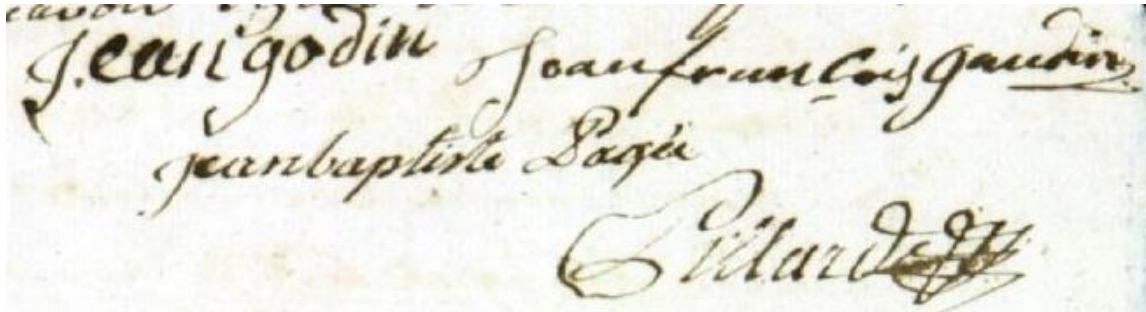 Jean godin Jean françois Gaudin
jean baptiste Pagéz
Pillard